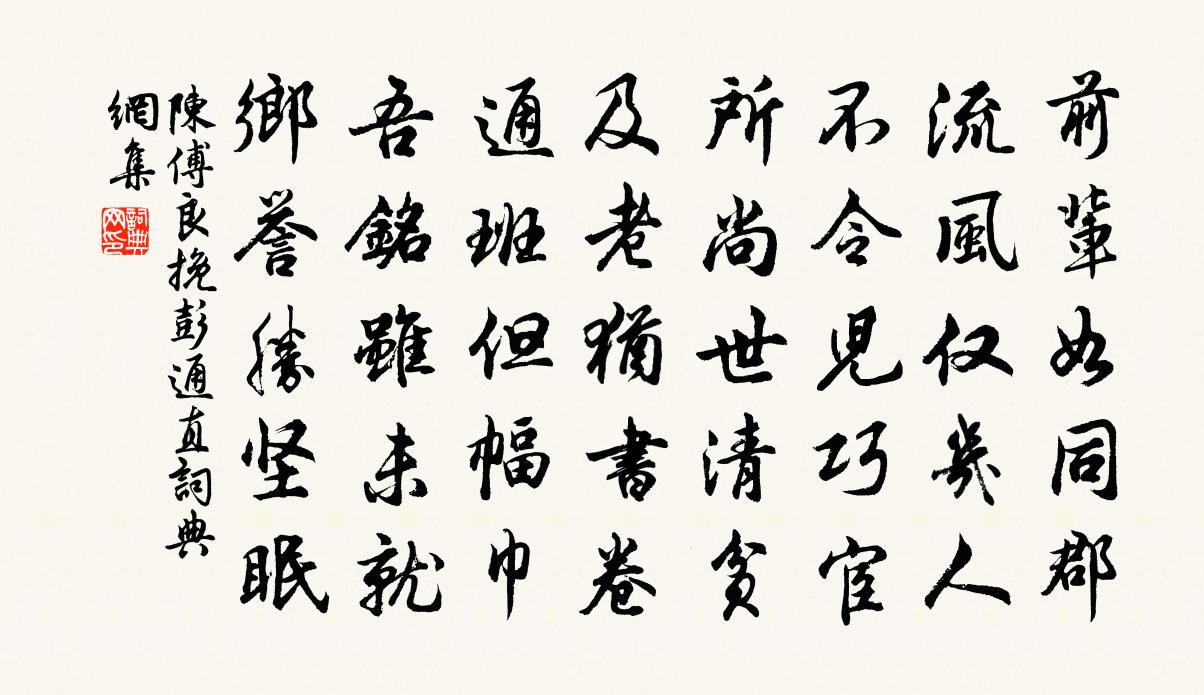 前輩如同郡
流風仅幾人
不令兒巧宦
所尚世清貧
及老猶書卷
通班但幅巾
吾銘雖未就
鄉誉勝坚眠
陳傅良挽彭通直詞典
網集
詞典
网印